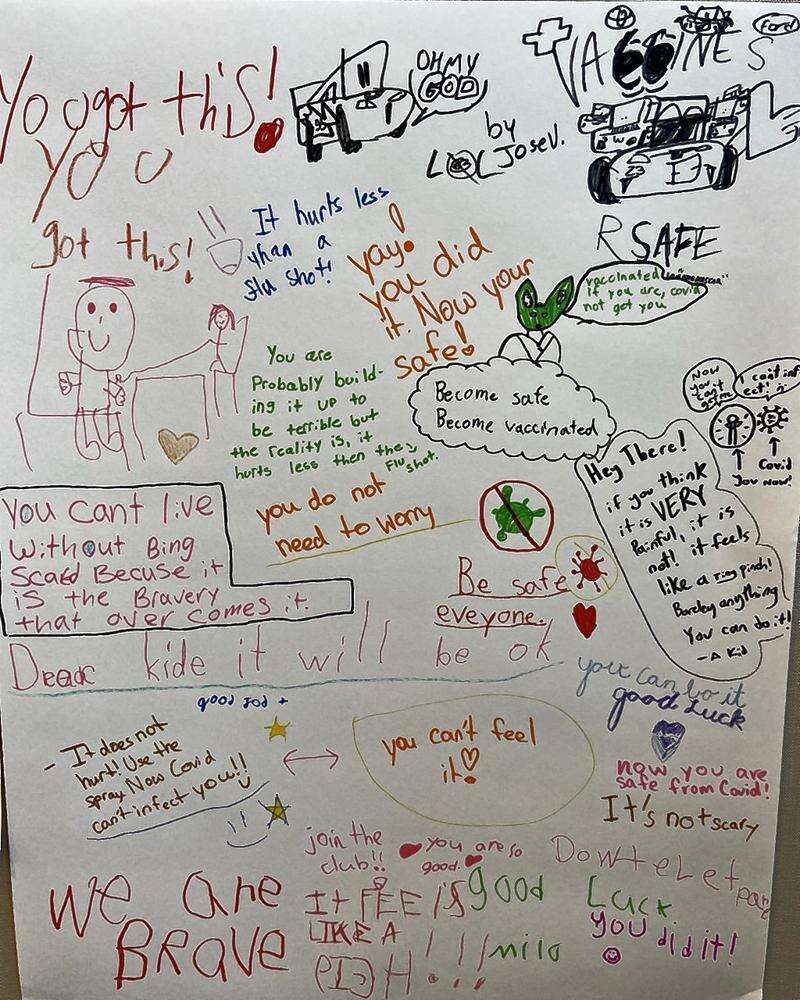 You got this!
OH MY
GOD
VACCINES
ford
by
JoseV.
LOL
R SAFE
You
got this!
It hurts less
than a
flu shot!
yay!
you did
it. Now your
safe!
vaccinated
if you are, covid
not get you
You are
Probably build-
ing it up to
be terrible but
the reality is, it
hurts less then the
Flu shot.
Become safe
Become vaccinated
Now
you
can't
get me
I can't inf
ect!
You
Now!
Covid
Hey There!
if you think
it is VERY
Painful, it is
not! it feels
like a tiny pinch!
Bareley anything
You can do it!
- A Kid
you do not
need to worry
you cant live
Without Bing
Scard Becuse it
is the Bravery
that over comes it.
Be safe
eveyone.
Dear kide it will be ok
you can do it
good Luck
good Job +
- It does not
hurt! Use the
spray Now Covid
can't infect you!!
you can't feel
it!
now you are
safe from Covid!
It's not scary
join the
club!!
You are so
good.
We are
BRave
It FEElS
LIKE A
!!!
good
Luck
milo
you did it!